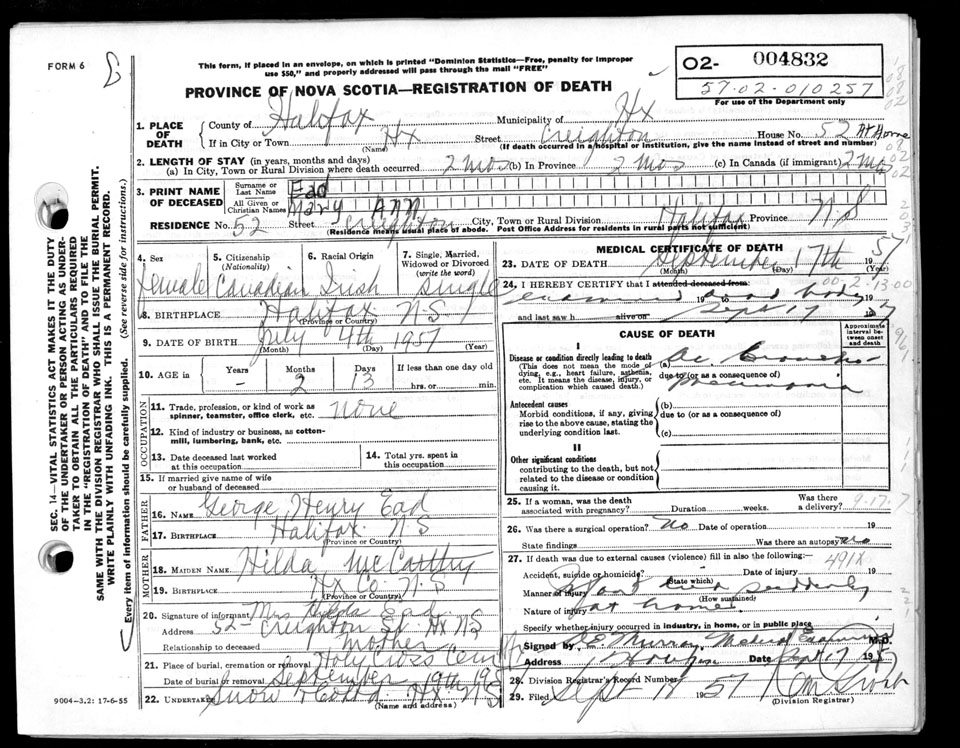 FORM 6
This form, if placed in an envelope, on which is printed "Dominion Statistics—Free, penalty for improper
use $50," and properly addressed will pass through the mail "FREE"
PROVINCE OF NOVA SCOTIA—REGISTRATION OF DEATH
O2- 004832
57-02-010257
For use of the Department only
SEC. 14—VITAL STATISTICS ACT MAKES IT THE DUTY
OF THE UNDERTAKER OR PERSON ACTING AS UNDER-
TAKER TO OBTAIN ALL THE PARTICULARS REQUIRED
IN THE "REGISTRATION OF DEATH" AND TO FILE THE
SAME WITH THE DIVISION REGISTRAR WHO SHALL ISSUE THE BURIAL PERMIT.
WRITE PLAINLY WITH UNFADING INK. THIS IS A PERMANENT RECORD.
Every item of information should be carefully supplied. (See reverse side for instructions.)
1. PLACE OF DEATH County of Halifax Municipality of Hx
If in City or Town Hx (Name) Street Creighton House No. 52 At Home
(If death occurred in a hospital or institution, give the name instead of street and number)
2. LENGTH OF STAY (in years, months and days)
(a) In City, Town or Rural Division where death occurred 2 mos (b) In Province 2 mos (c) In Canada (if immigrant) 2 mos
3. PRINT NAME OF DECEASED Surname or Last Name Ead
All Given or Christian Names Mary Ann
RESIDENCE No. 52 Street Creighton City, Town or Rural Division Halifax Province N.S
(Residence means usual place of abode. Post Office Address for residents in rural parts not sufficient)
4. Sex female
5. Citizenship (Nationality) Canadian
6. Racial Origin Irish
7. Single, Married, Widowed or Divorced (write the word) Single
8. BIRTHPLACE Halifax N.S (Province or Country)
9. DATE OF BIRTH July 4th 1957
(Month) (Day) (Year)
10. AGE Years - Months 2 Days 13 If less than one day old
hrs. or min.
OCCUPATION
11. Trade, profession, or kind of work as spinner, teamster, office clerk, etc. none
12. Kind of industry or business, as cotton-mill, lumbering, bank, etc.
13. Date deceased last worked at this occupation
14. Total yrs. spent in this occupation
15. If married give name of wife or husband of deceased
FATHER
16. NAME George Henry Ead
17. BIRTHPLACE Halifax N.S
(Province or Country)
MOTHER
18. MAIDEN NAME Hilda McCarthy
19. BIRTHPLACE Hx Co. N.S
(Province or Country)
20. Signature of informant Mrs Hilda Ead
Address 52 - Creighton St. Hx N.S
Relationship to deceased mother
21. Place of burial, cremation or removal Holy Cross Cem
Date of burial or removal September 19th 19
22. UNDERTAKER Snow Hx N.S
(Name and address)
9004-3.2: 17-6-55
MEDICAL CERTIFICATE OF DEATH
23. DATE OF DEATH September 17th 1957
(Month) (Day) (Year)
24. I HEREBY CERTIFY that I attended deceased from:
examined dead body
to Sept 17 19 57
and last saw h alive on
CAUSE OF DEATH
Approximate interval between onset and death
I
Disease or condition directly leading to death
(This does not mean the mode of dying, e.g., heart failure, asthenia, etc. It means the disease, injury, or complication which caused death.)
(a) Broncho-
due to (or as a consequence of)
pneumonia
Antecedent causes
Morbid conditions, if any, giving rise to the above cause, stating the underlying condition last.
(b)
due to (or as a consequence of)
(c)
II
Other significant conditions
contributing to the death, but not related to the disease or condition causing it.
25. If a woman, was the death associated with pregnancy? Duration weeks. Was there a delivery? 9-17-7
26. Was there a surgical operation? No Date of operation 19
State findings Was there an autopsy? no
27. If death was due to external causes (violence) fill in also the following:— 491X
Accident, suicide or homicide? (State which) Date of injury 19
Manner of injury Infant died suddenly
(How sustained)
Nature of injury at home
Specify whether injury occurred in industry, in home, or in public place
Signed by D.E. Murray, Medical Examiner M.D.
Address Date Sept 17 1957
28. Division Registrar's Record Number
29. Filed Sept 19 1957
(Division Registrar)